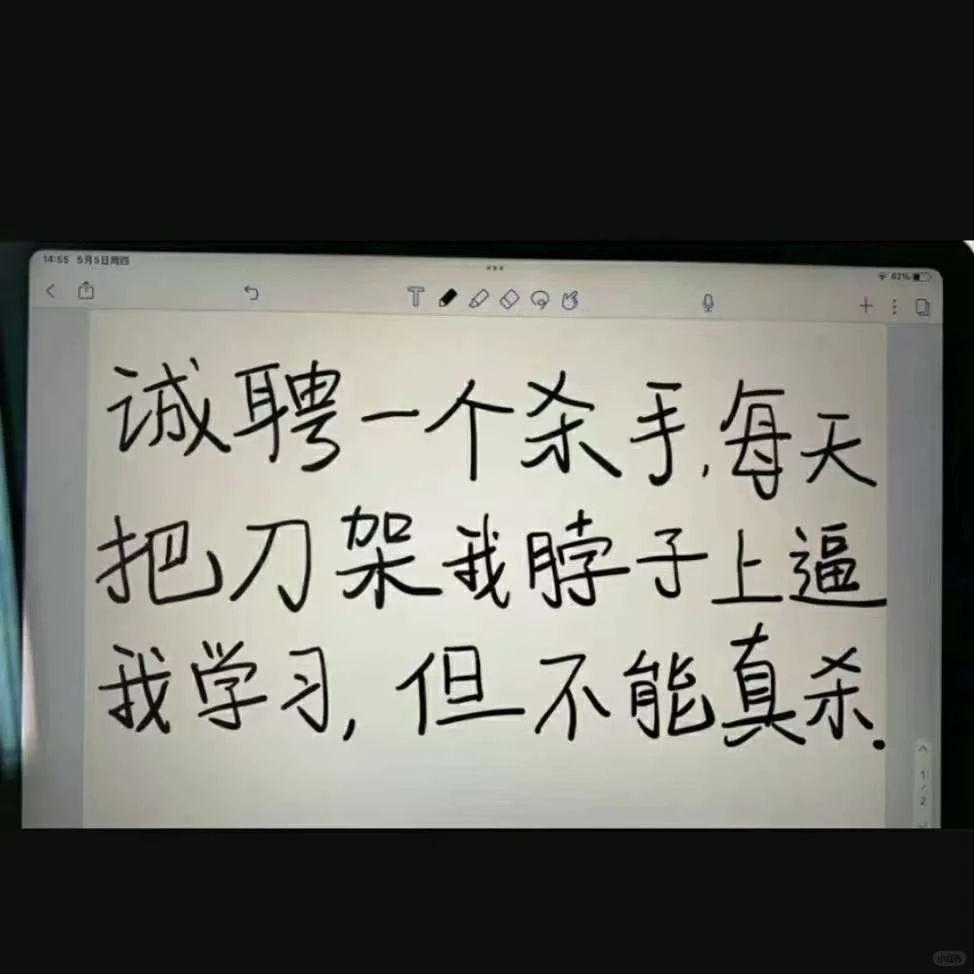 14:55 5月5日周四
62%
诚聘一个杀手,每天
把刀架我脖子上逼
我学习,但不能真杀.
1
/
2
小红书